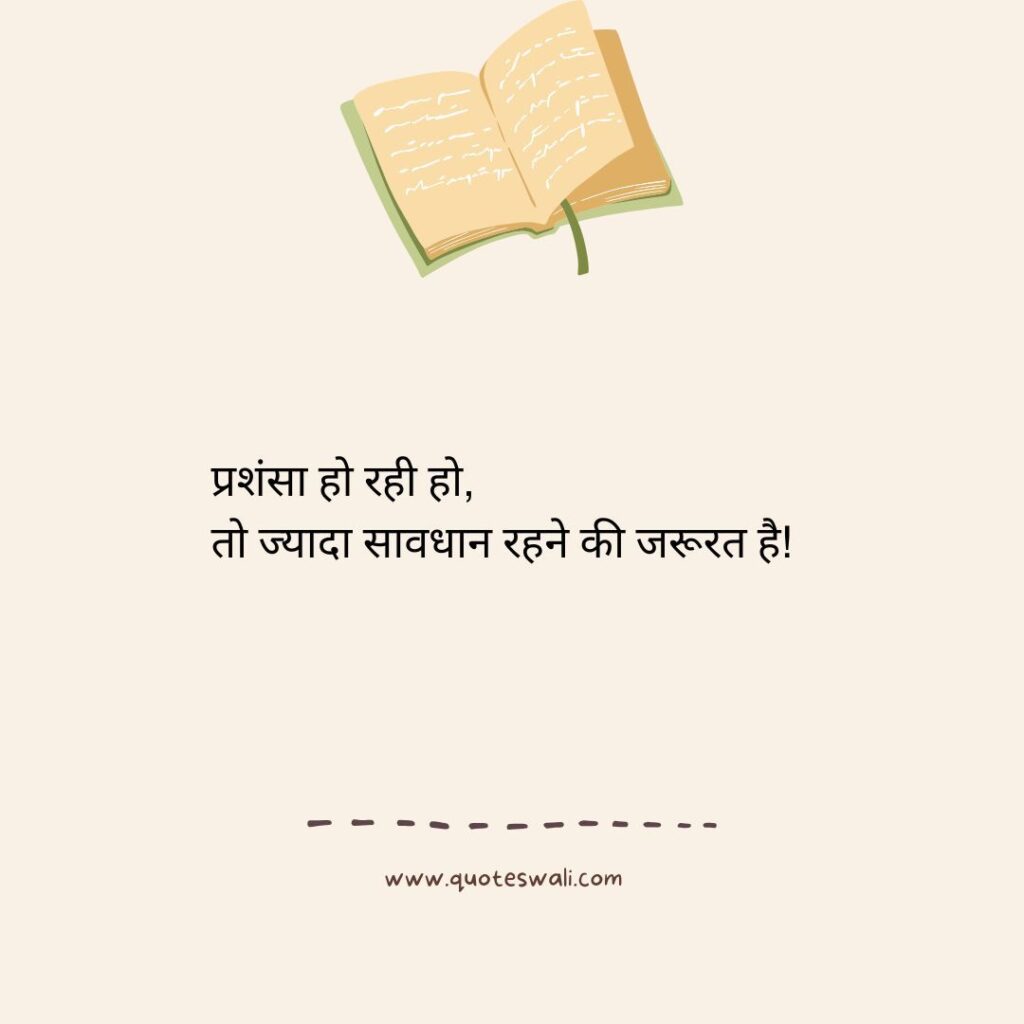 प्रशंसा हो रही हो,
तो ज्यादा सावधान रहने की जरूरत है!
www.quoteswali.com